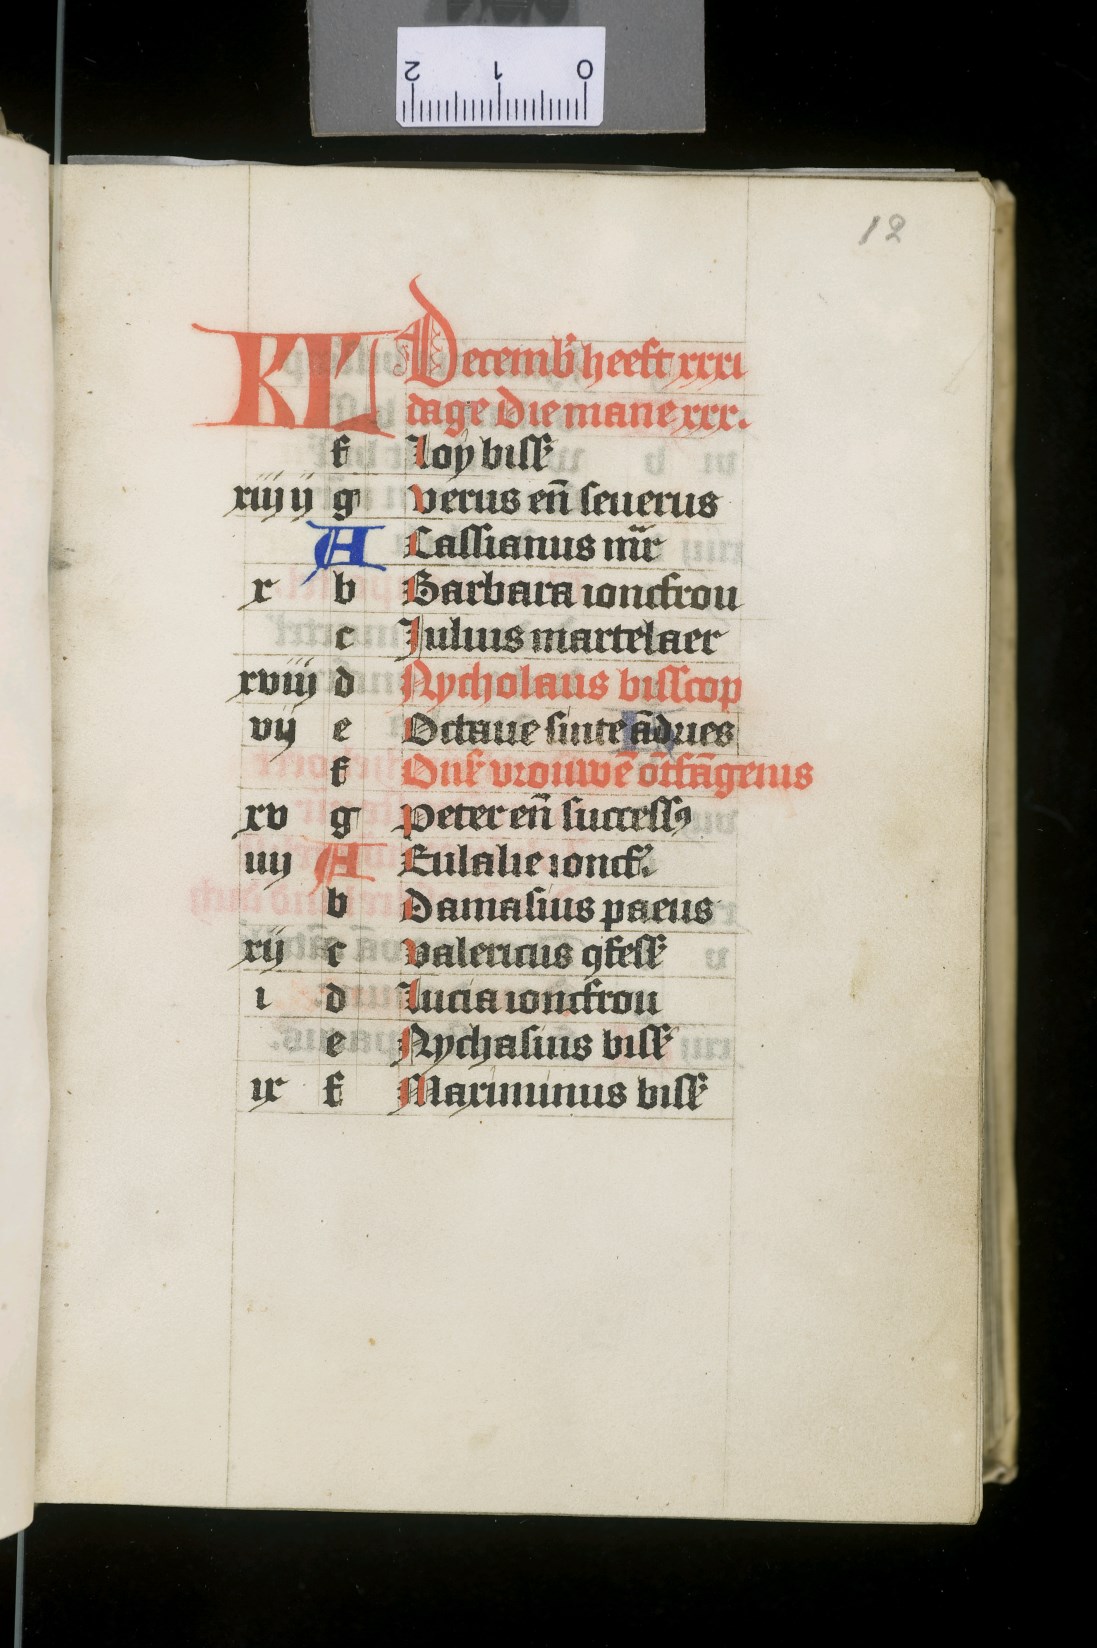 2 1 0
12
KL Decemb' heeft xxxi
dage Die mane xxx.
f Loy biss'
xiiij ij g Verus en̄ seuerus
A Cassianus mr̄
x b Barbara ioncfrou
c Julius martelaer
xviij d Nycholaus bisscop
vij e Octaue sinte ādries
f Onser vrouwē ōtfāgenis
xv g Peter en̄ successꝰ
iiij A Eulalie ioncf'
b Damasius paeus
xij c Valericus ꝯfess'
i d Lucia ioncfrou
e Nychasius biss'
ix f Maximinus biss'